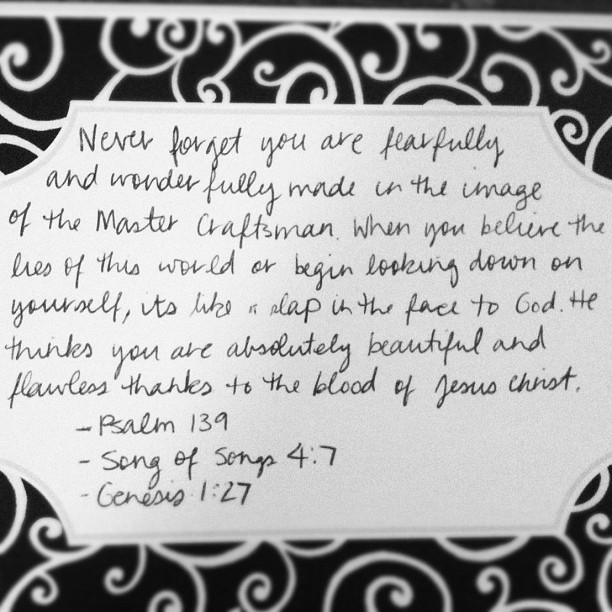 Never forget you are fearfully
and wonderfully made in the image
of the Master Craftsman. When you believe the
lies of this world or begin looking down on
yourself, its like a slap in the face to God. He
thinks you are absolutely beautiful and
flawless thanks to the blood of Jesus Christ.
- Psalm 139
- Song of Songs 4:7
- Genesis 1:27